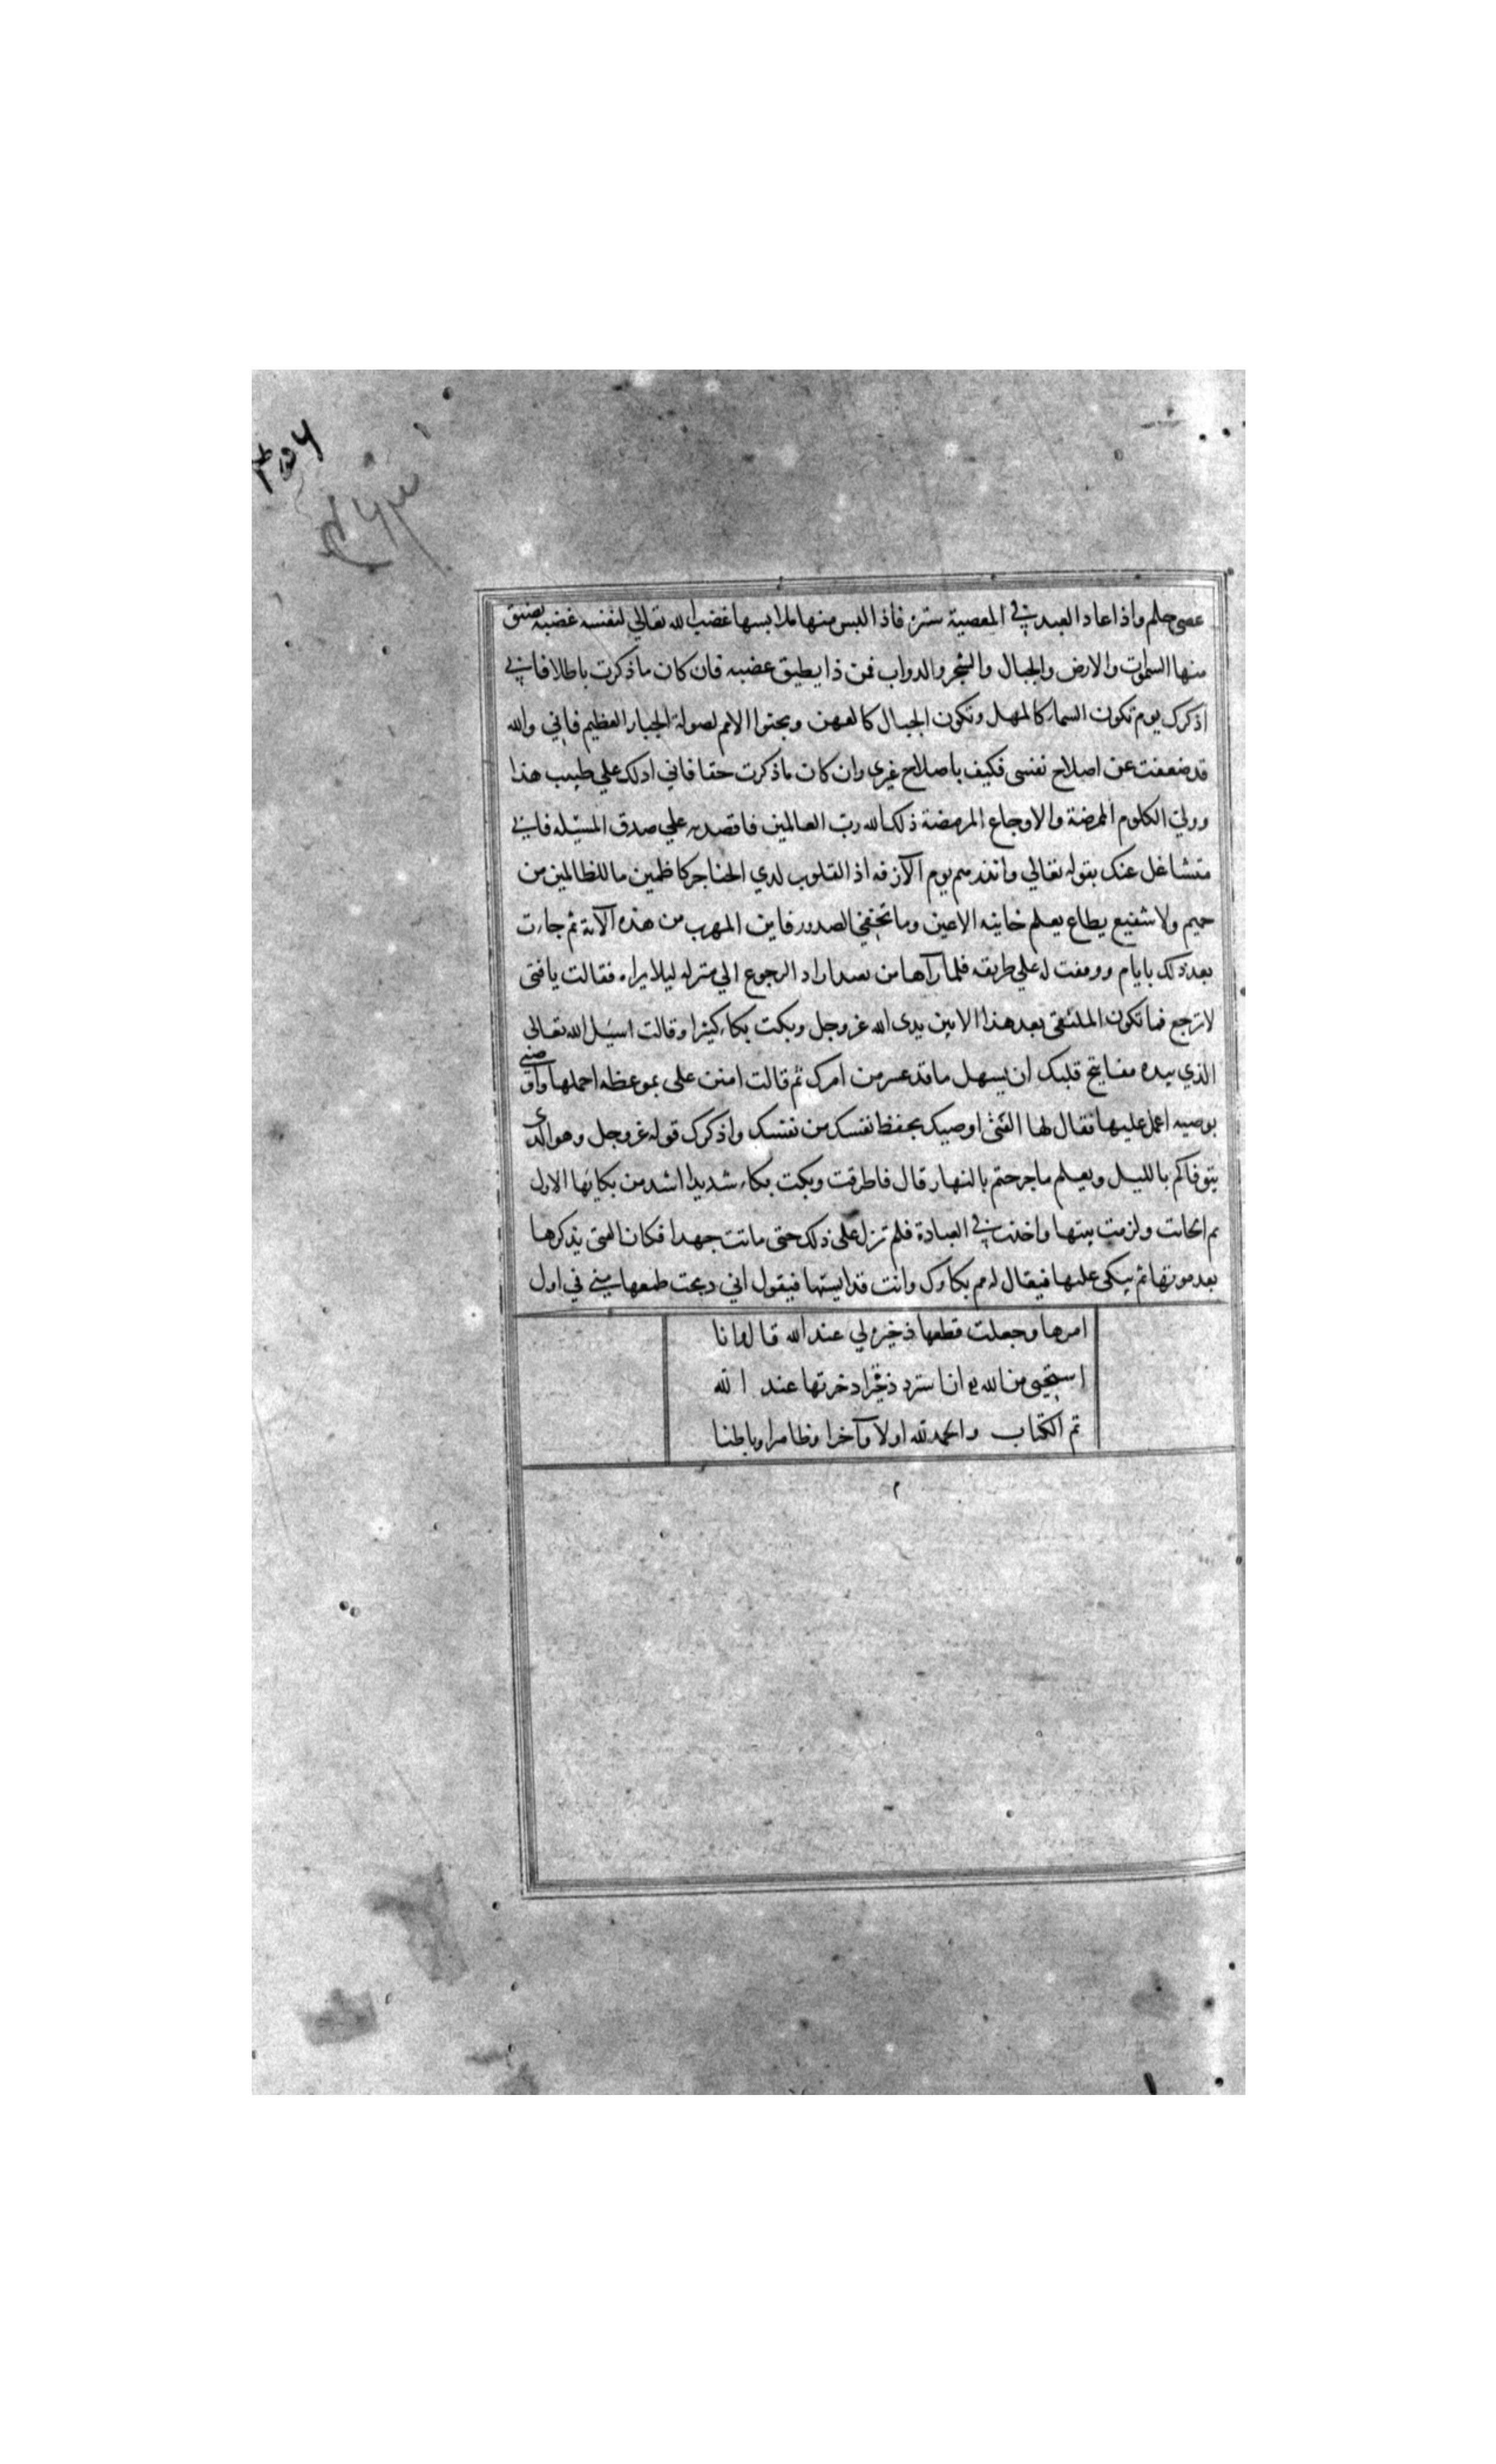 عصى حلم واذا عاد العبد في المعصية ستره فاذا البس منها ملابسها غضب الله تعالي لنفسه غضبه يضيق
منها السموات والارض والجبال والشجر والدواب فمن ذا يطيق غضبه فان كان ما ذكرت باطلا فاني
اذكرك يوم تكون السماء كالمهل وتكون الجبال كالعهن وبجثوا الامم لصولة الجبار العظيم فاني والله
قد ضعفت عن اصلاح نفسي فكيف باصلاح غيري وان كان ما ذكرت حقا فاني ادلك علي طبيب هذا
وولي الكلوم الممرضة والاوجاع المرمضة ذلك الله رب العالمين فاقصديه علي صدق المسئله فاني
متشاغل عنك بقوله تعالي وانذرهم يوم الآزفه اذ القلوب لدي الحناجر كاظمين ما للظالمين من
حميم ولا شفيع يطاع يعلم خاينه الاعين وما تخفي الصدور فاين المهرب من هذه الآية ثم جاءت
بعد ذلك بايام ووقفت له علي طريقه فلما رآها من بعيد اراد الرجوع الي منزله ليلا يراه فقالت يا فتى
لا ترجع فما تكون الملتقى بعد هذا الا بين يدى الله عز وجل وبكت بكاء كثيرا وقالت اسيل الله تعالى
الذي بيده مفاتيح قلبك ان يسهل ما قد عسر من امرك ثم قالت امنن على بموعظه احملها واوصني
بوصيه اعمل عليها فقال لها الفتى اوصيك بحفظ نفسك من نفسك واذكرك قوله عز وجل وهو الذي
يتوفاكم بالليل ويعلم ما جرحتم بالنهار قال فاطرقت وبكت بكاء شديدا اشد من بكايها الاول
ثم اتحانت ولزمت بيتها واخذت في العبادة فلم تزل على ذلك حتى ماتت جهدا فكان الفتى يذكرها
بعد موتها ثم يبكى عليها فيقال له مم بكاؤك وانت قد ايستها فيقول اني ذبحت طمعها مني في اول
امرها وجعلت قطعها ذخيرة لي عند الله قا لى فانا
استحيى من الله ان استرد ذخيرة ادخرتها عند الله
تم الكتاب والحمد لله اولا وآخرا وظاهرا وباطنا
م